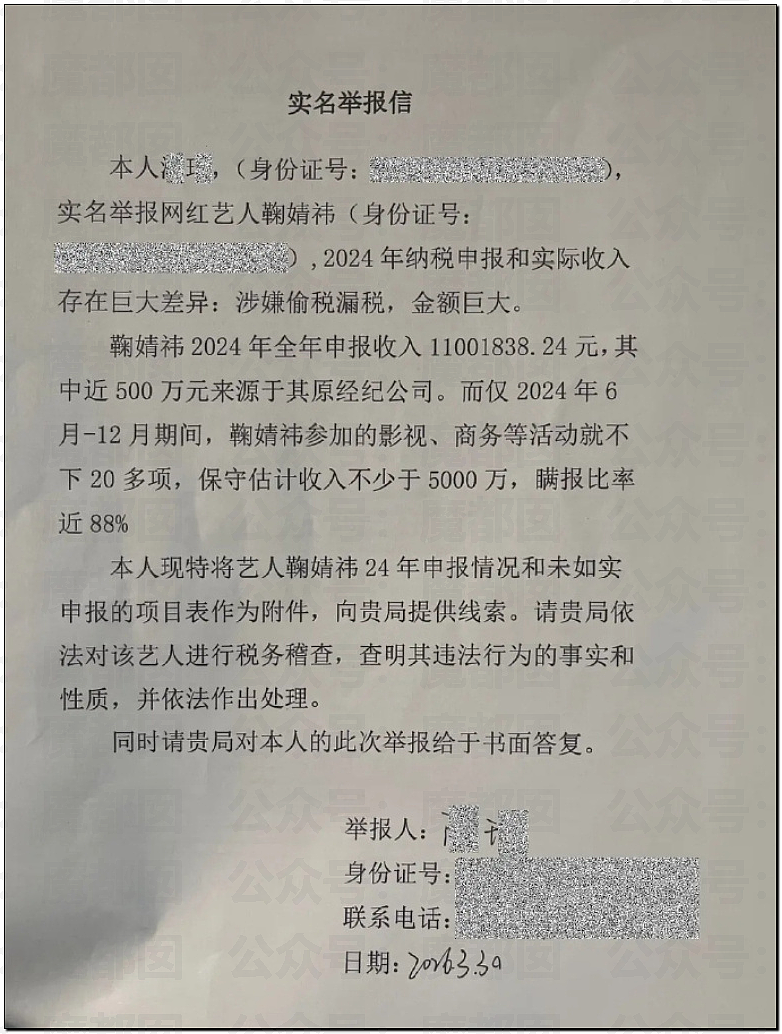 实名举报信
本人,（身份证号：），
实名举报网红艺人鞠婧祎（身份证号：
）,2024年纳税申报和实际收入
存在巨大差异：涉嫌偷税漏税，金额巨大。
鞠婧祎2024年全年申报收入11001838.24元，其
中近500万元来源于其原经纪公司。而仅2024年6
月-12月期间，鞠婧祎参加的影视、商务等活动就不
下20多项，保守估计收入不少于5000万，瞒报比率
近88%
本人现特将艺人鞠婧祎24年申报情况和未如实
申报的项目表作为附件，向贵局提供线索。请贵局依
法对该艺人进行税务稽查，查明其违法行为的事实和
性质，并依法作出处理。
同时请贵局对本人的此次举报给于书面答复。
举报人：
身份证号：
联系电话：
日期：2026.3.30